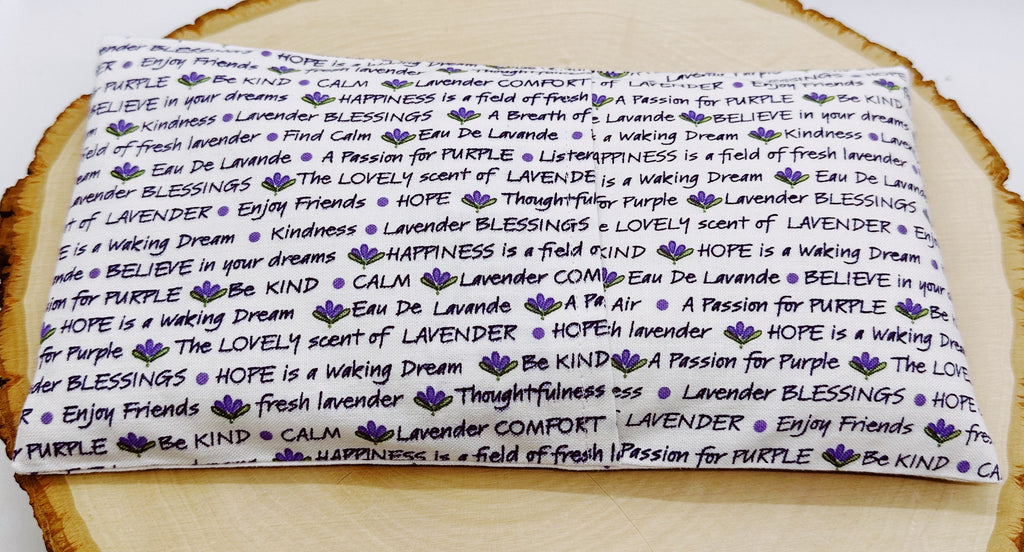 ender BLESSINGS • HOPE is a Waking Dream
ER • Enjoy Friends fresh lavender Thoughtfulness of LAVENDER • Enjoy Friends BLESSINGS
PURPLE Be KIND • CALM Lavender COMFORT A Passion for PURPLE Be KIND
BELIEVE in your dreams HAPPINESS is a field of fresh e Lavande BELIEVE in your dreams
m Kindness • Lavender BLESSINGS A Breath of a Waking Dream Kindness • Laven
ield of fresh lavender • Find Calm Eau De Lavande • PPINESS is a field of fresh lavender
eam Eau De Lavande • A Passion for PURPLE • Listen is a Waking Dream Eau De Lavan
avender BLESSINGS The LOVELY scent of LAVENDE or Purple Lavender BLESSINGS
t of LAVENDER • Enjoy Friends • HOPE Thoughtful e LOVELY scent of LAVENDER • Enj
E is a Waking Dream • Kindness • Lavender BLESSINGS KIND HOPE is a Waking Dream
nde • BELIEVE in your dreams HAPPINESS is a field o Eau De Lavande • BELIEVE in your
ion for PURPLE Be KIND • CALM Lavender COM Air • A Passion for PURPLE Be
HOPE is a Waking Dream Eau De Lavande A Pa h lavender HOPE is a Waking Dream
for Purple The LOVELY scent of LAVENDER • HOPE A Passion for Purple The LOVE
der BLESSINGS • HOPE is a Waking Dream Be KIND ess • Lavender BLESSINGS • HOPE
R • Enjoy Friends fresh lavender Thoughtfulness LAVENDER • Enjoy Friends fres
PURPLE Be KIND • CALM Lavender COMFORT Passion for PURPLE Be KIND • CA
HAPPINESS is a field of fresh